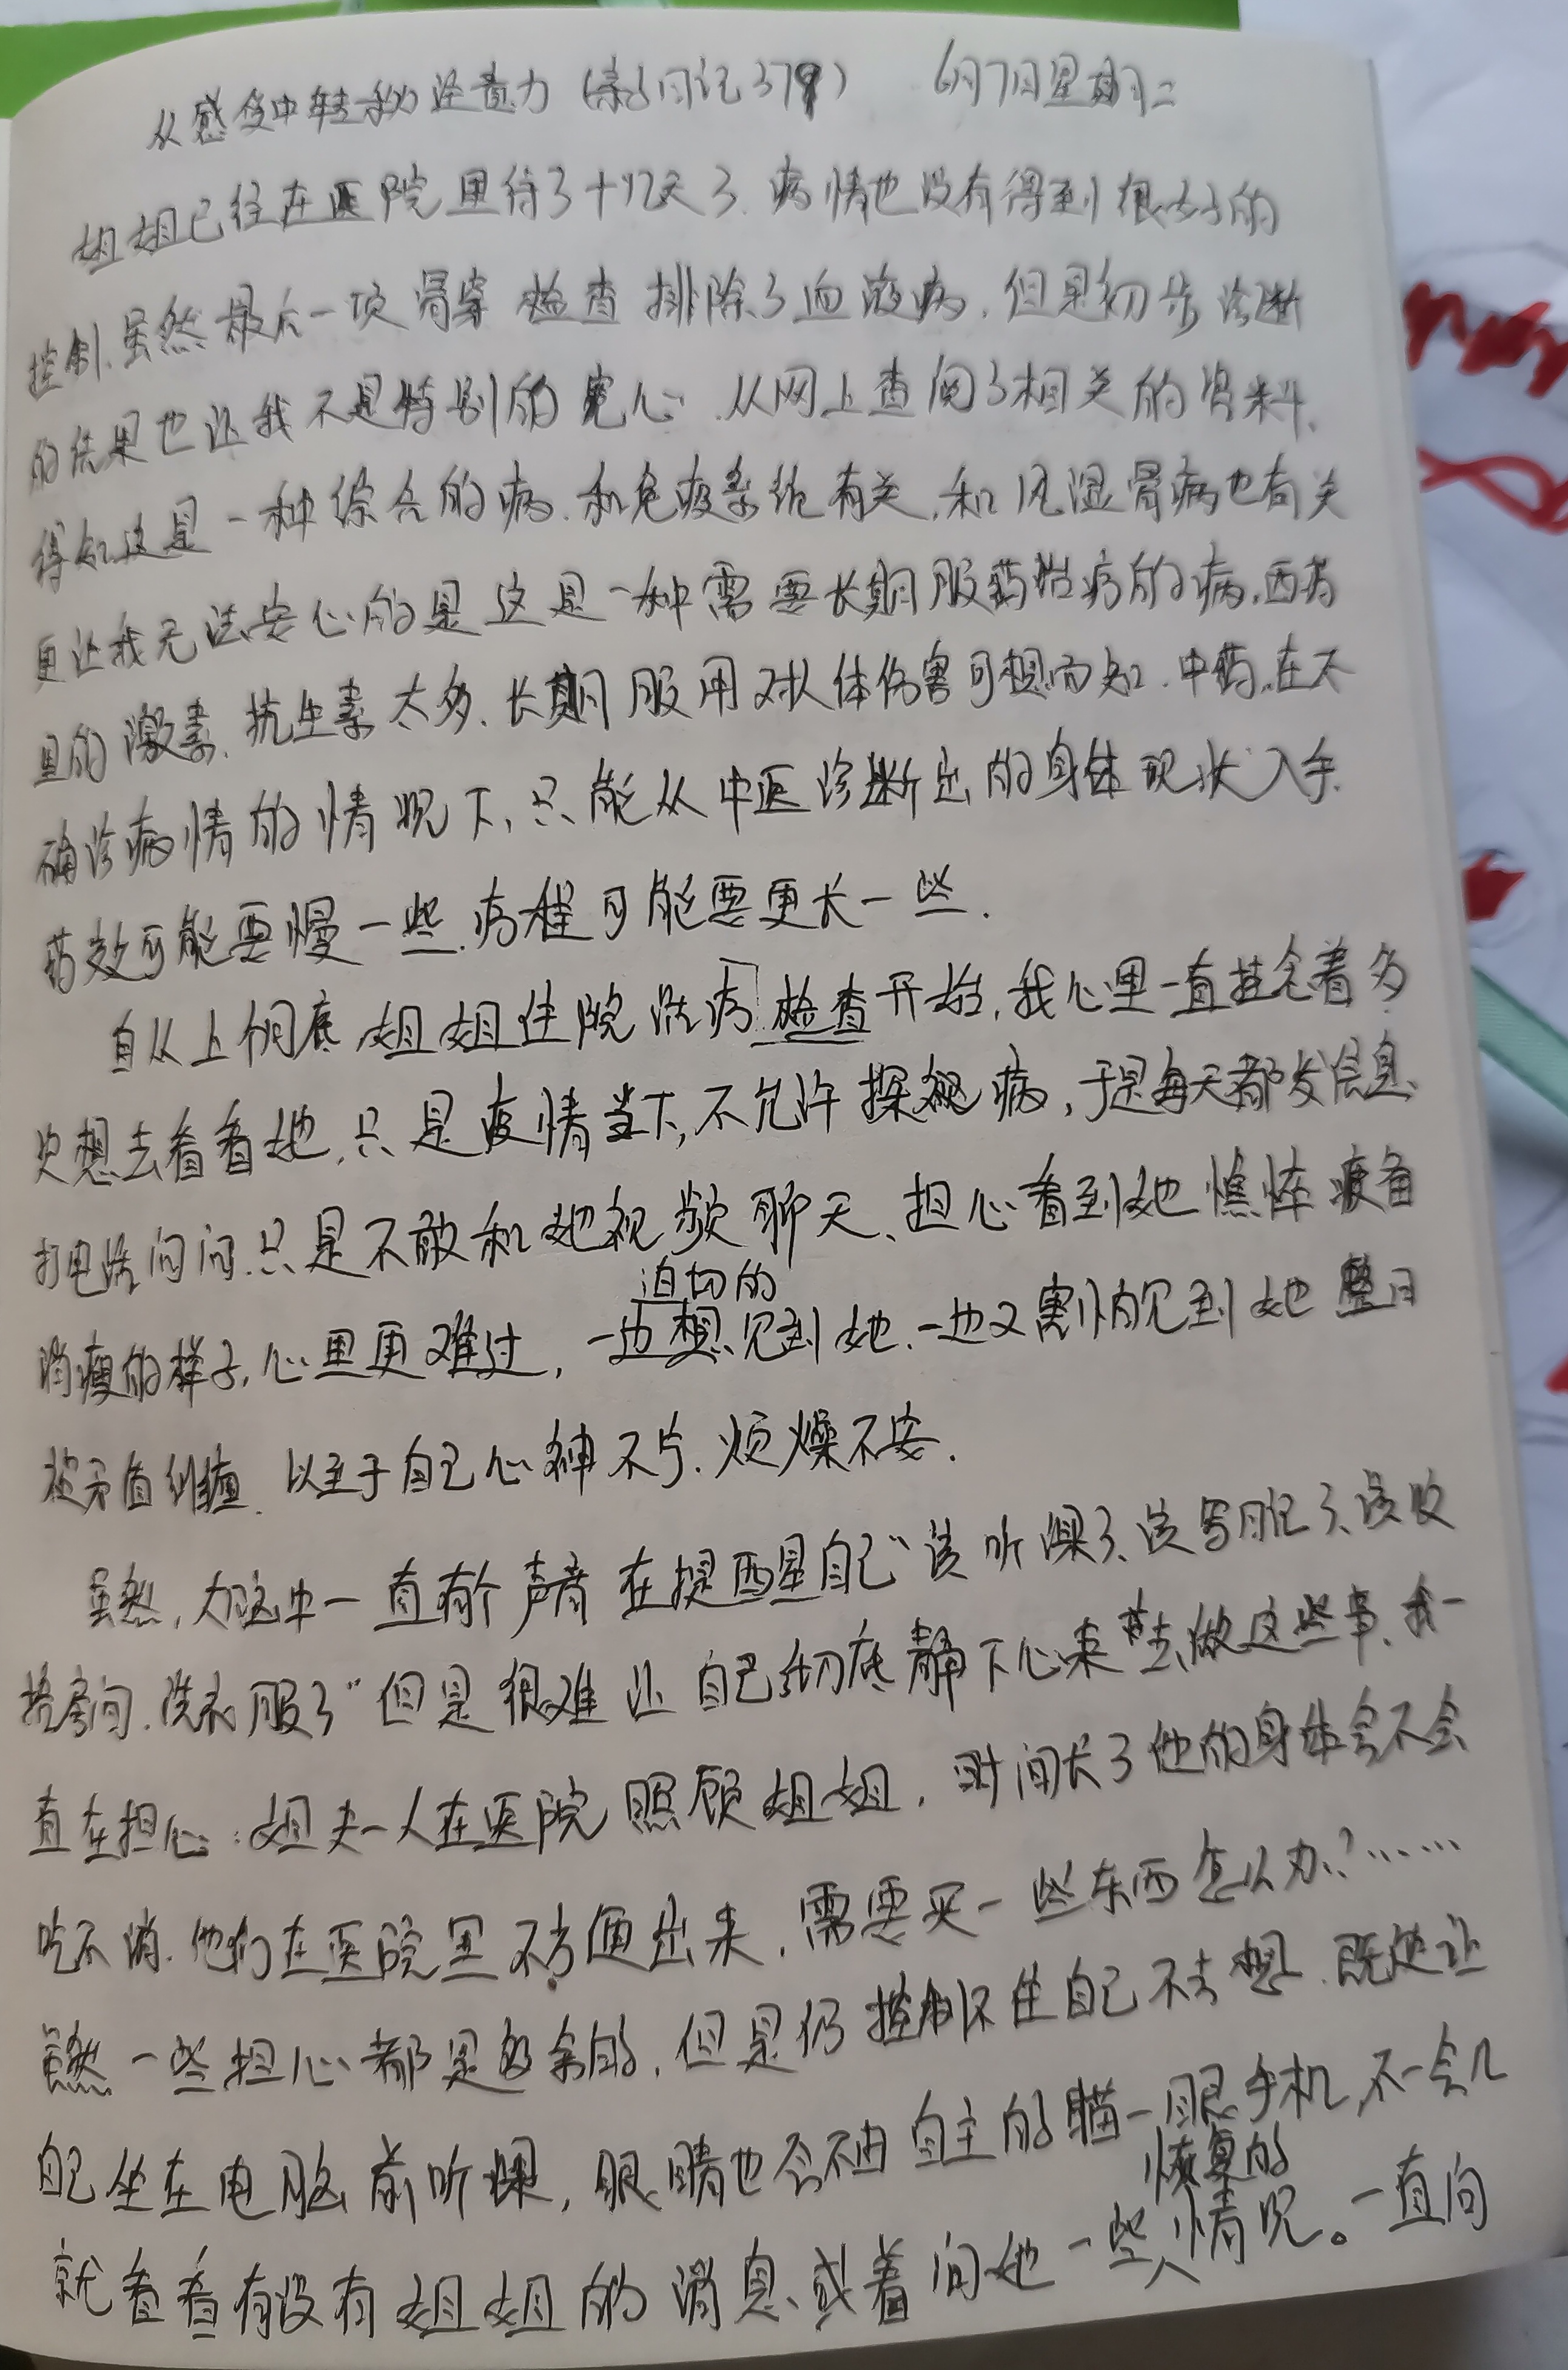 从感受中转移注意力（亲子日记379） 6月7日星期二
姐姐已经在医院里待了十几天了.病情也没有得到很好的
控制.虽然最后一项骨穿检查排除了血液病.但是初步诊断
的结果也让我不是特别的宽心.从网上查阅了相关的资料、
得知这是一种综合的病.和免疫系统有关.和风湿骨病也有关
更让我无法安心的是这是一种需要长期服药治疗的病.西药
里的激素、抗生素太多、长期服用对人体伤害可想而知.中药,在不
确诊病情的情况下,只能从中医诊断出的身体现状入手.
药效可能要慢一些.疗程可能要更长一些.
自从上个月底姐姐住院治疗检查开始,我心里一直挂念着多
次想去看看她,只是疫情当下,不允许探视病,于是每天都发信息、
打电话问问.只是不敢和她视频聊天、担心看到她憔悴疲备
消瘦的样子,心里更难过,一边迫切的想见到她、一边又害怕见到她 整日
被矛盾纠缠.以至于自己心神不宁.烦燥不安.
虽然,大脑中一直有个声音在提醒自己“该听课了、该写日记了、该收
拾房间.洗衣服了”但是很难让自己彻底静下心来去做这些事、我一
直在担心:姐夫一人在医院照顾姐姐,时间长了他的身体会不会
吃不消.他们在医院里不方便出来,需要买一些东西怎么办?……
虽然一些担心都是多余的,但是仍控制不住自己不去想.既使让
自己坐在电脑前听课,眼睛也会不由自主的瞄一眼手机,不一会儿
就看看有没有姐姐的消息、或着问她一些恢复的情况。一直向